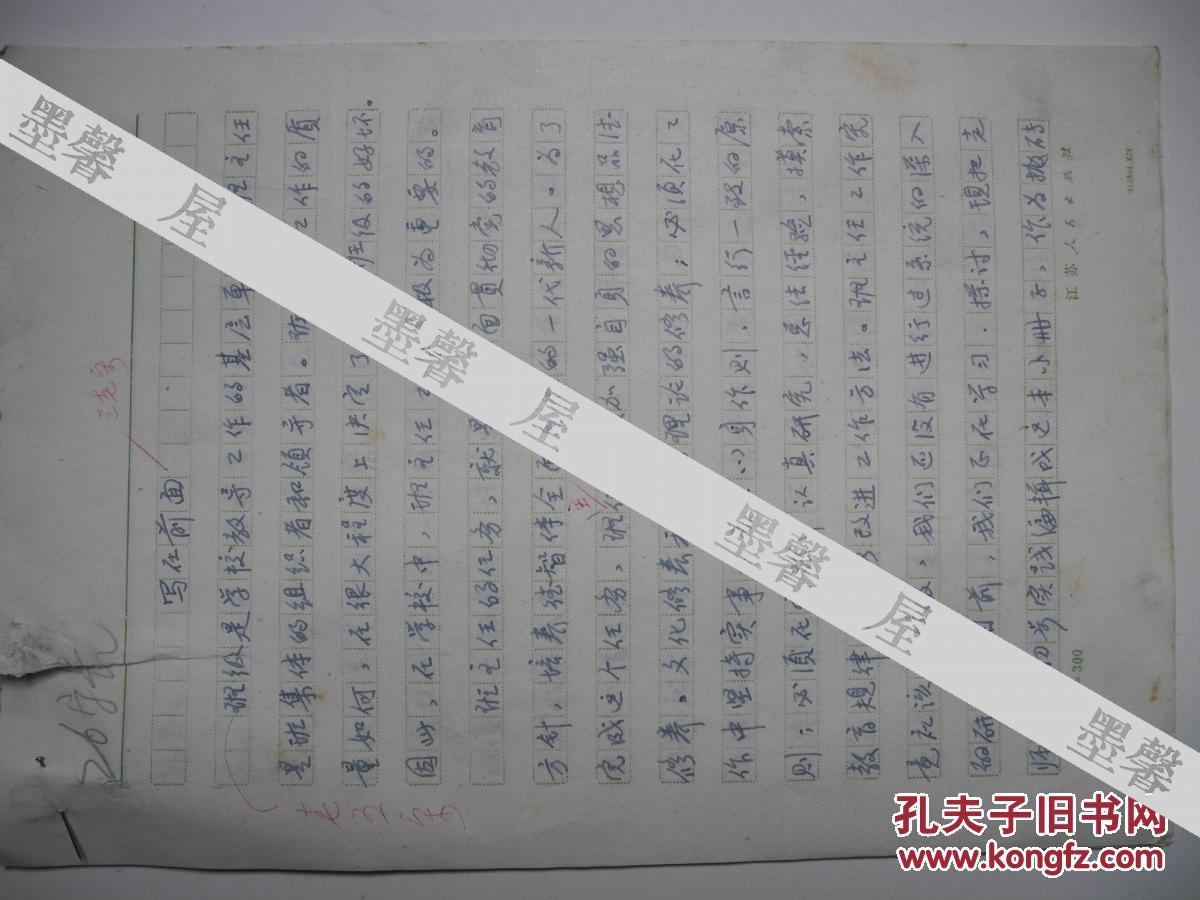 写在前面
班级是学校教导工作的基层单 主任
是班集体的组织者和领导者。班 工作的质
量如何,在很大程度上决定了 班级的好坏。
因此,在学校中,班主任 极为重要的。
班主任的任务,就是 面贯彻党的教育
方针,培养德智体全 的一代新人。为了
完成这个任务,班 加强自身的思想品德
修养、文化修养 理论的修养;必须在工
作中坚持实事 身作则、言行一致的原
则;必须在 认真研究,总结经验,摸索
教育规律 改进工作方法。班主任工作究
竟应该 我们还没有进行过系统的深入
的研 前,我们正在学习、探讨,现把老
师 实践编辑成这本小册子,作为抛砖
江苏人民出版社
=300
三老宋
老五活
墨馨
屋
墨馨
屋
墨馨
屋
墨馨
孔夫子旧书网
www.kongfz.com